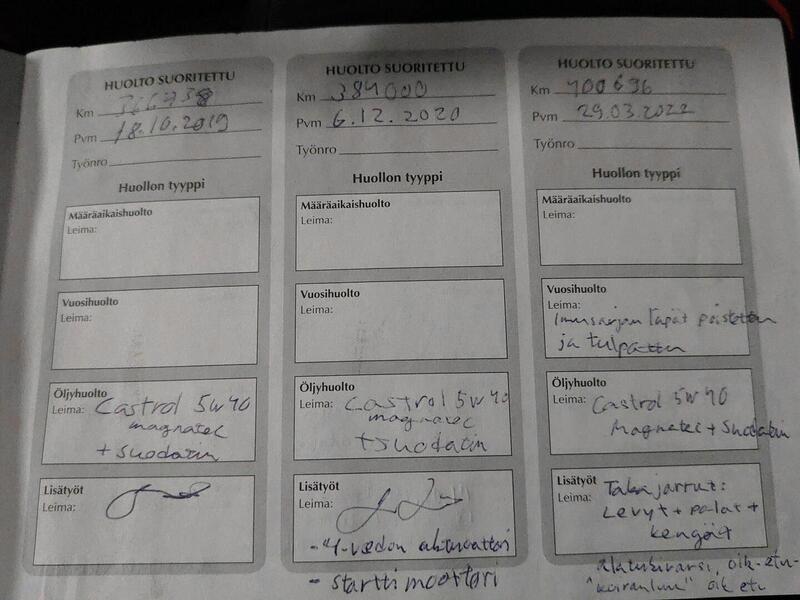 HUOLTO SUORITETTU
Km
Pvm 18.10.2019
Työnro
Huollon tyyppi
Määräaikaishuolto
Leima:
Vuosihuolto
Leima:
Öljyhuolto
Leima: Castrol 5w40
magnatec
+ suodatin
Lisätyöt
Leima:
HUOLTO SUORITETTU
Km 384000
Pvm 6.12.2020
Työnro
Huollon tyyppi
Määräaikaishuolto
Leima:
Vuosihuolto
Leima:
Öljyhuolto
Leima: Castrol 5w40
magnatec
+ suodatin
Lisätyöt
Leima:
- 4-vedon aktuaattori
- starttimoottori
HUOLTO SUORITETTU
Km 400696
Pvm 29.03.2022
Työnro
Huollon tyyppi
Määräaikaishuolto
Leima:
Vuosihuolto
Leima:
Imusarjan läpät poistettu
ja tulpattu
Öljyhuolto
Leima: Castrol 5w40
Magnatec + Suodatin
Lisätyöt Takajarrut:
Leima: Levyt + palat +
kengät
alatukivarsi, oik-etu-
"koiranluu" oik etu